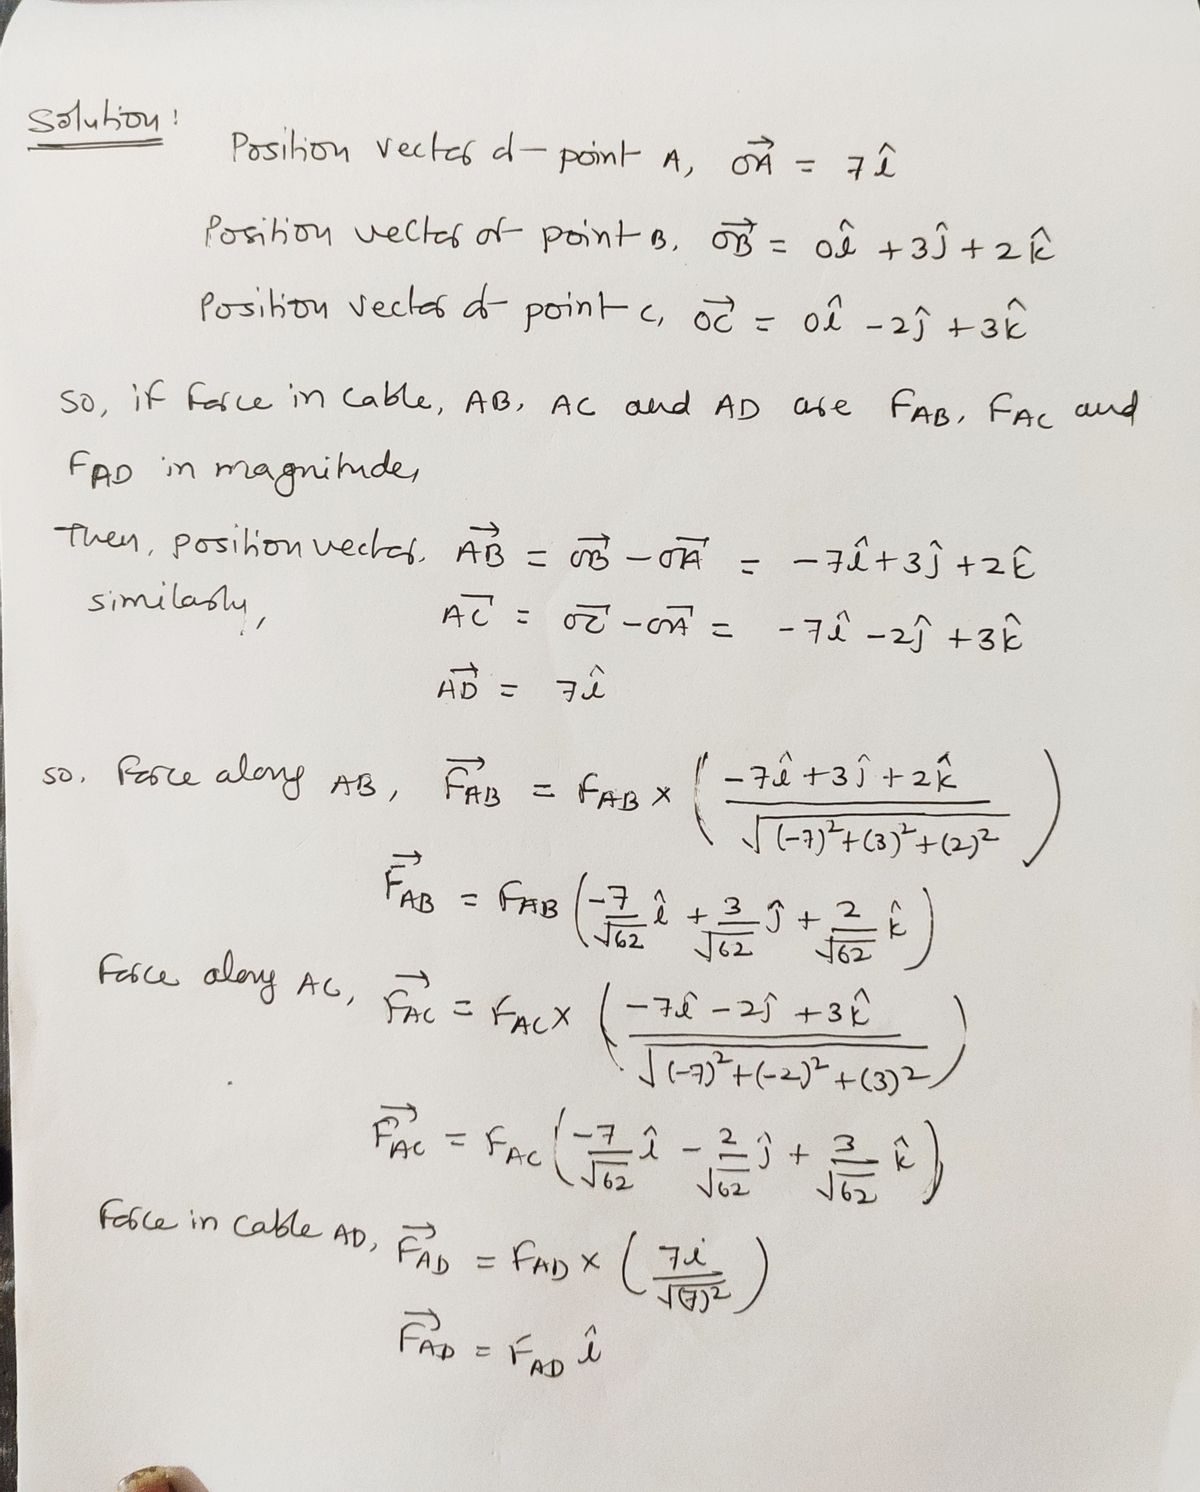 Solution:
Position vector of point A, $\overrightarrow{OA} = 7\hat{i}$
Position vector of point B, $\overrightarrow{OB} = 0\hat{i} + 3\hat{j} + 2\hat{k}$
Position vector of point C, $\overrightarrow{OC} = 0\hat{i} - 2\hat{j} + 3\hat{k}$
So, if force in cable, AB, AC and AD are $F_{AB}$, $F_{AC}$ and
$F_{AD}$ in magnitude,
Then, position vector. $\overrightarrow{AB} = \overrightarrow{OB} - \overrightarrow{OA} = -7\hat{i} + 3\hat{j} + 2\hat{k}$
similarly, $\overrightarrow{AC} = \overrightarrow{OC} - \overrightarrow{OA} = -7\hat{i} - 2\hat{j} + 3\hat{k}$
$\overrightarrow{AD} = 7\hat{i}$
so. Force along AB, $\overrightarrow{F_{AB}} = F_{AB} \times \left( \frac{-7\hat{i} + 3\hat{j} + 2\hat{k}}{\sqrt{(-7)^2 + (3)^2 + (2)^2}} \right)$
$\overrightarrow{F_{AB}} = F_{AB} \left( \frac{-7}{\sqrt{62}}\hat{i} + \frac{3}{\sqrt{62}}\hat{j} + \frac{2}{\sqrt{62}}\hat{k} \right)$
Force along AC, $\overrightarrow{F_{AC}} = F_{AC} \times \left( \frac{-7\hat{i} - 2\hat{j} + 3\hat{k}}{\sqrt{(-7)^2 + (-2)^2 + (3)^2}} \right)$
$\overrightarrow{F_{AC}} = F_{AC} \left( \frac{-7}{\sqrt{62}}\hat{i} - \frac{2}{\sqrt{62}}\hat{j} + \frac{3}{\sqrt{62}}\hat{k} \right)$
Force in cable AD, $\overrightarrow{F_{AD}} = F_{AD} \times \left( \frac{7\hat{i}}{\sqrt{(7)^2}} \right)$
$\overrightarrow{F_{AD}} = F_{AD}\, \hat{i}$